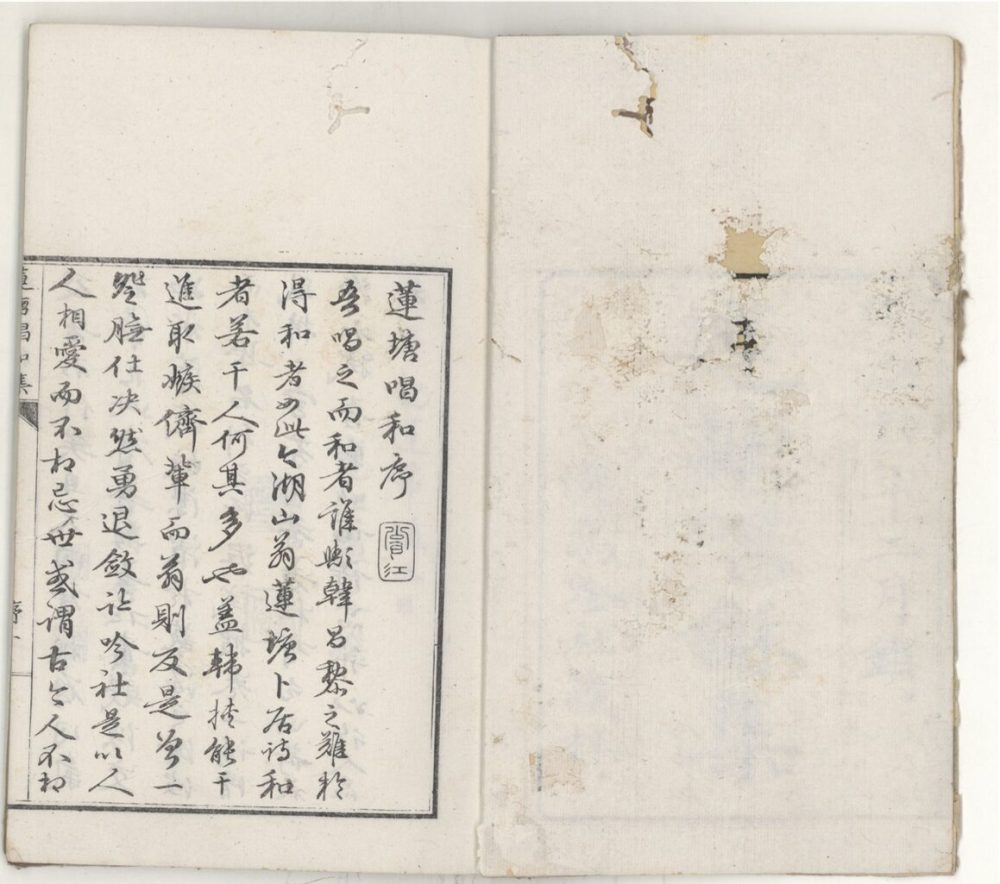 蓮塘唱和序
吾唱之而和者誰歟韓昌黎之難於
得和者如此今湖山翁蓮塘卜居詩和
者若干人何其多也蓋韓挟能干
進取嫉儕輩而翁則反是曽一
登膴仕决然勇退斂迹吟社是以人
人相愛而不相忌世或謂古今人不相
蓮塘唱和集
序一